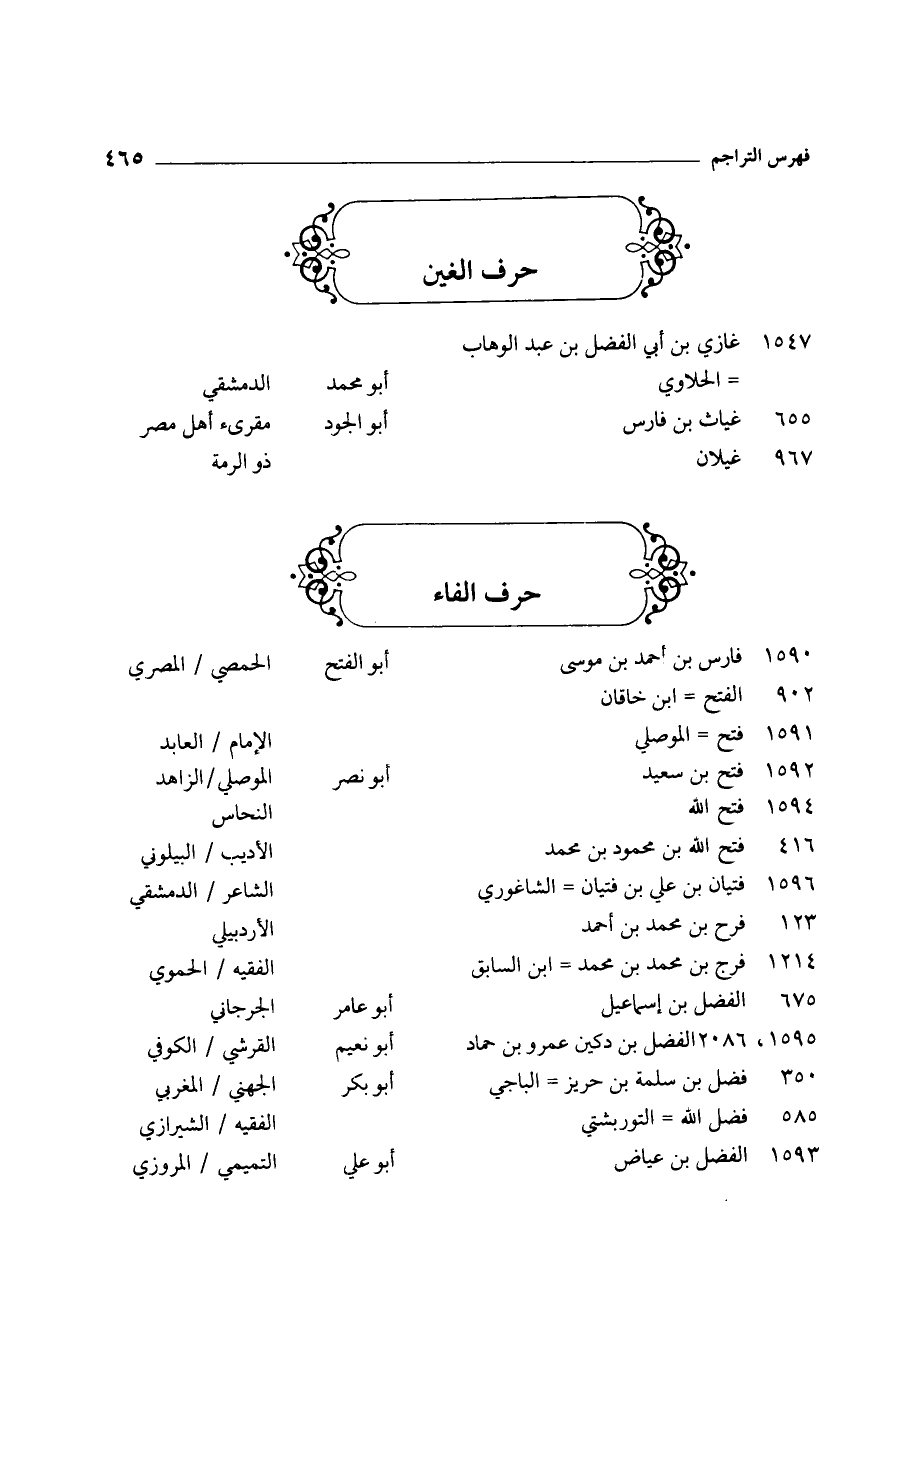 فهرس التراجم ٤٦٥
حرف الغين
١٥٤٧ غازي بن أبي الفضل بن عبد الوهاب
= الحلاوي أبو محمد الدمشقي
٦٥٥ غياث بن فارس أبو الجود مقرىء أهل مصر
٩٦٧ غيلان ذو الرمة
حرف الفاء
١٥٩٠ فارس بن أحمد بن موسى أبو الفتح الحمصي / المصري
٩٠٢ الفتح = ابن خاقان
١٥٩١ فتح = الموصلي الإمام / العابد
١٥٩٢ فتح بن سعيد أبو نصر الموصلي/الزاهد
١٥٩٤ فتح الله النحاس
٤١٦ فتح الله بن محمود بن محمد الأديب / البيلوني
١٥٩٦ فتيان بن علي بن فتيان = الشاغوري الشاعر / الدمشقي
١٢٣ فرح بن محمد بن أحمد الأردبيلي
١٢١٤ فرج بن محمد بن محمد = ابن السابق الفقيه / الحموي
٦٧٥ الفضل بن إسماعيل أبو عامر الجرجاني
١٥٩٥، ٢٠٨٦ الفضل بن دكين عمرو بن حماد أبو نعيم القرشي / الكوفي
٣٥٠ فضل بن سلمة بن حريز = الباجي أبو بكر الجهني / المغربي
٥٨٥ فضل الله = التوربشتي الفقيه / الشيرازي
١٥٩٣ الفضل بن عياض أبو علي التميمي / المروزي